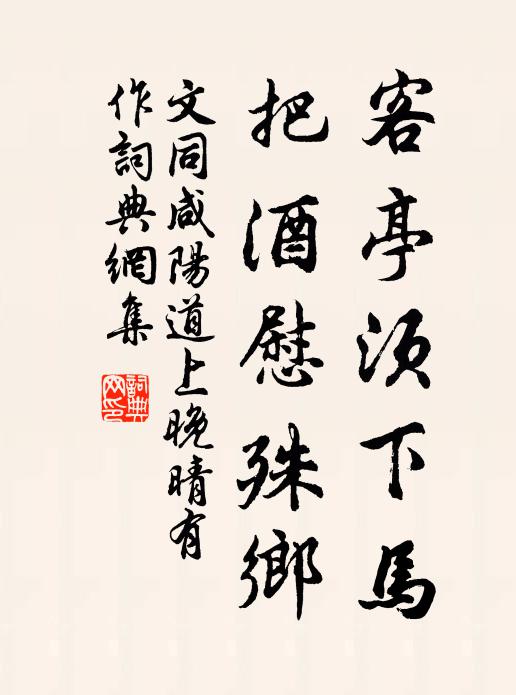 客亭須下馬
把酒慰殊鄉
文同咸陽道上晚晴有
作詞典網集
詞典
网印